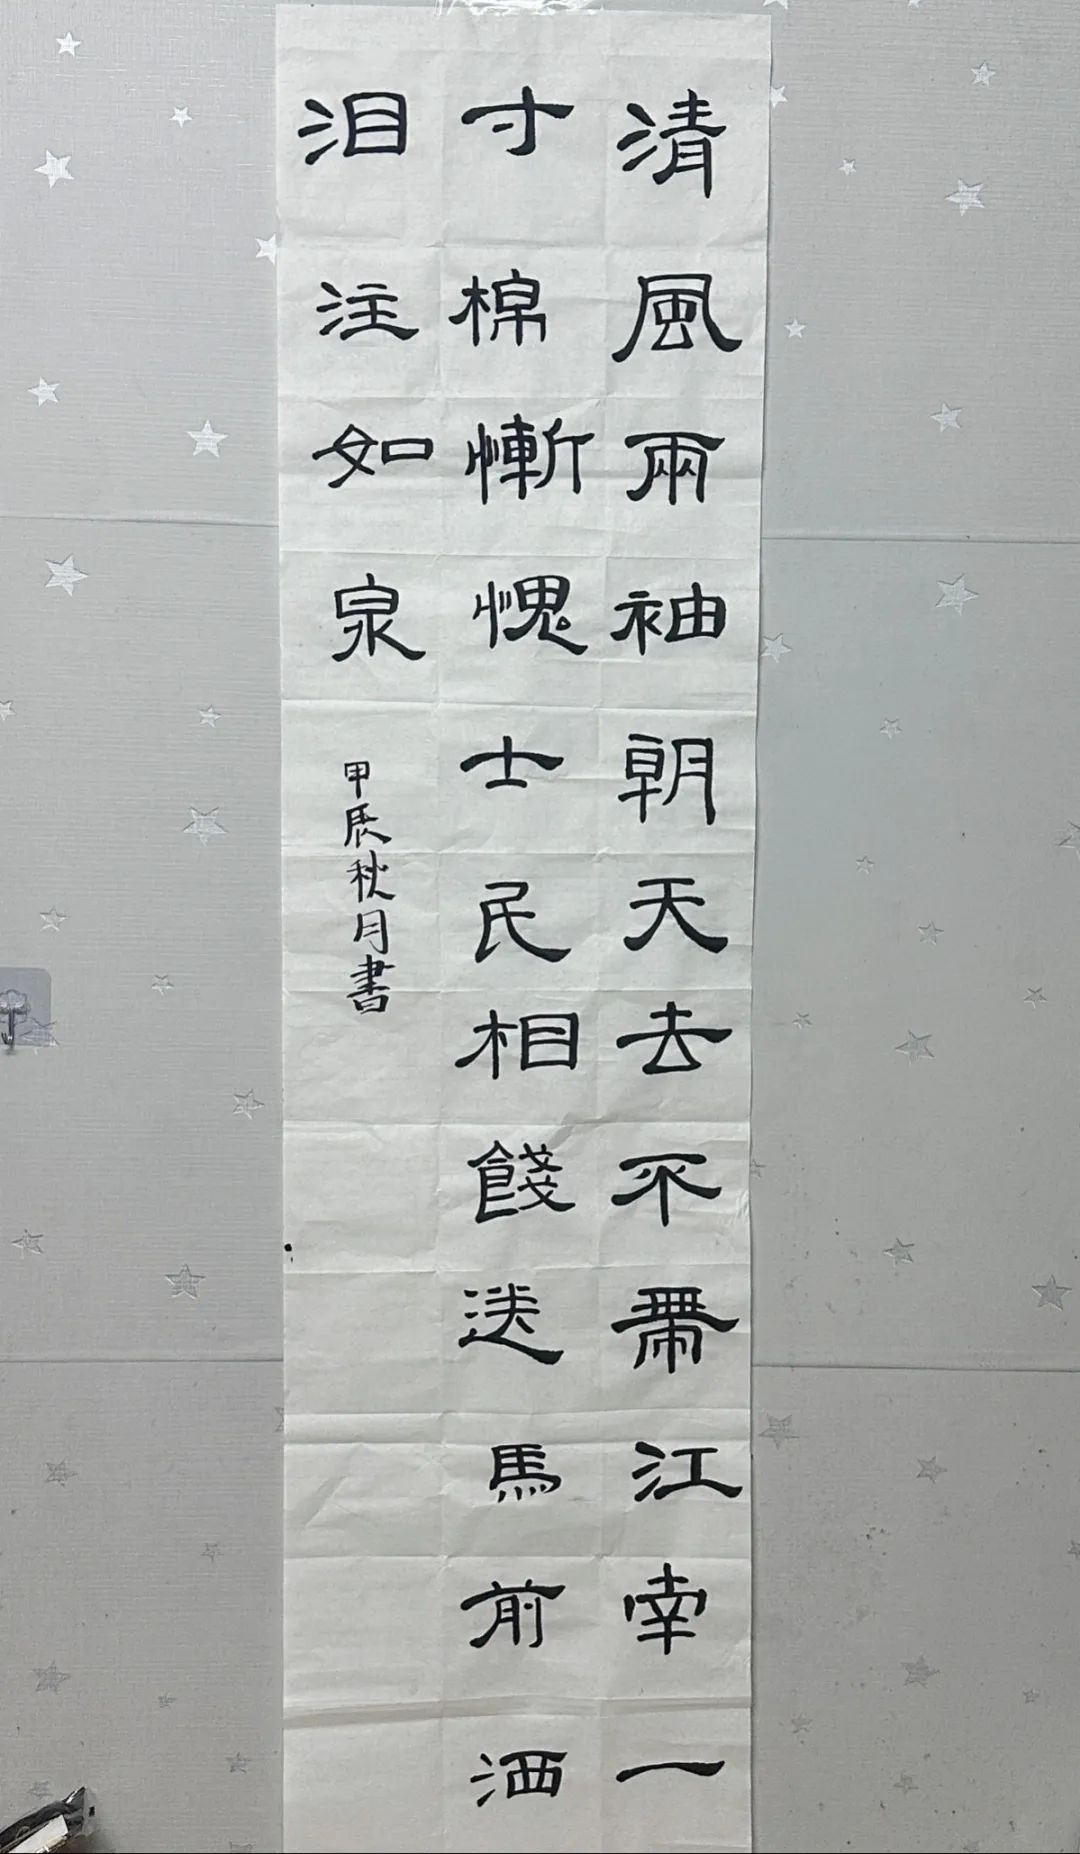 清風兩袖朝天去不帶江南一
寸棉慚愧士民相餞送馬前洒
泪注如泉
甲辰秋月書